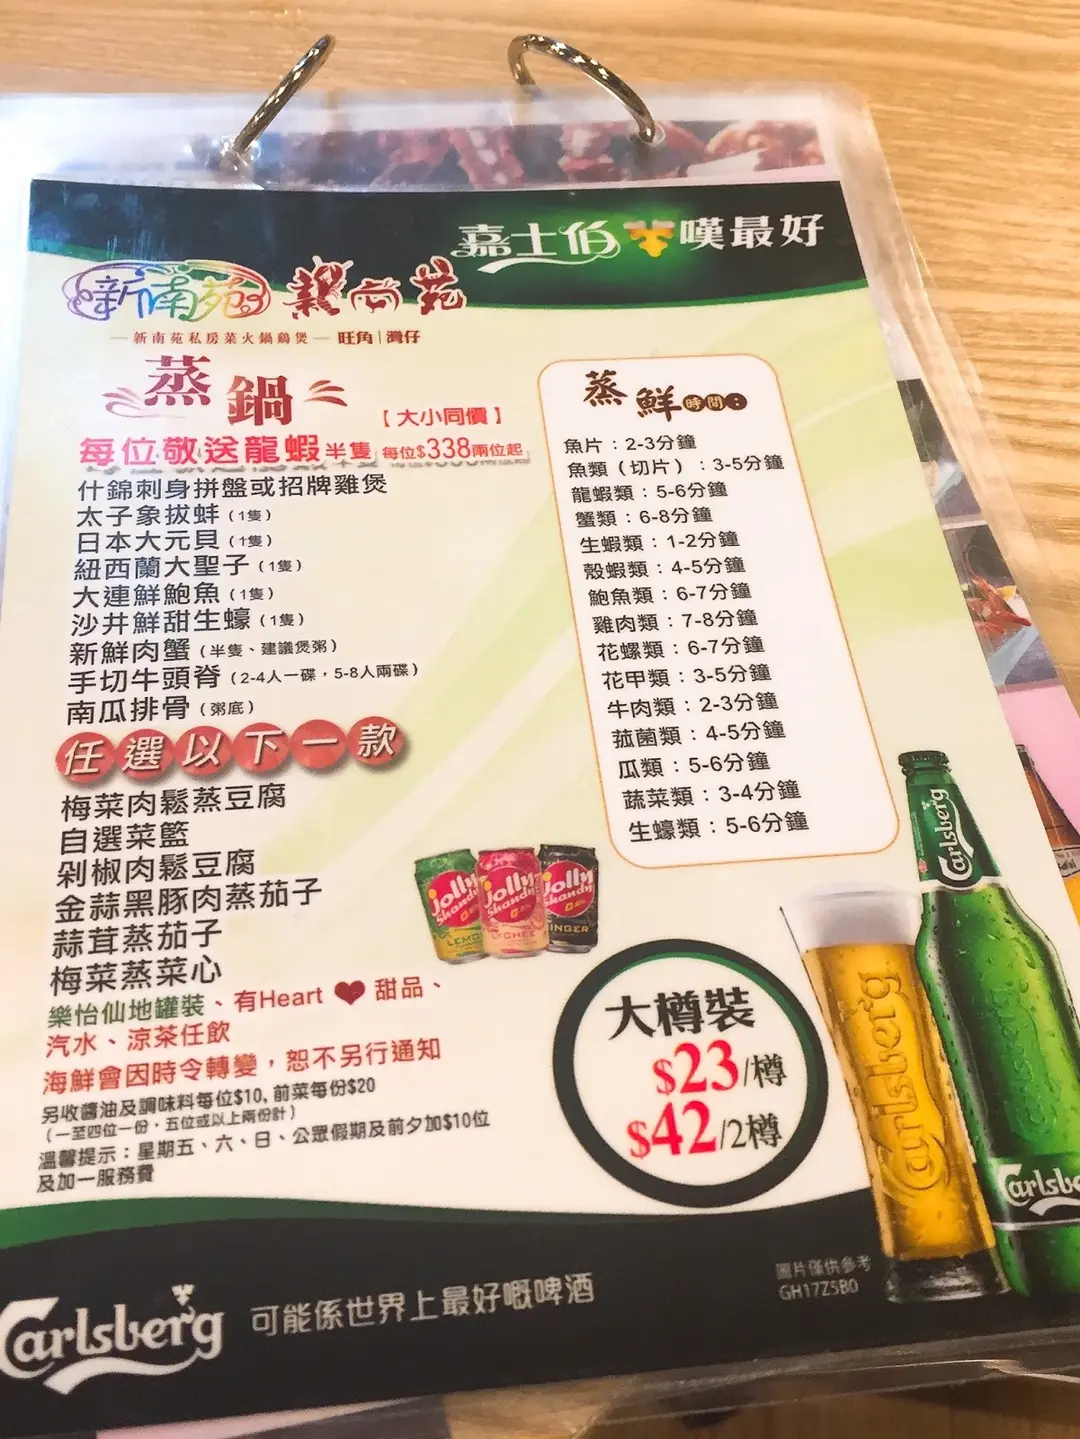 嘉士伯 嘆最好
新南苑
新南苑私房菜火鍋鷄煲 旺角|灣仔
蒸鍋
【大小同價】
每位敬送龍蝦半隻 每位$338兩位起
什錦刺身拼盤或招牌雞煲
太子象拔蚌(1隻)
日本大元貝(1隻)
紐西蘭大聖子(1隻)
大連鮮鮑魚(1隻)
沙井鮮甜生蠔(1隻)
新鮮肉蟹(半隻、建議煲粥)
手切牛頭脊(2-4人一碟,5-8人兩碟)
南瓜排骨(粥底)
任選以下一款
梅菜肉鬆蒸豆腐
自選菜籃
剁椒肉鬆豆腐
金蒜黑豚肉蒸茄子
蒜茸蒸茄子
梅菜蒸菜心
樂怡仙地罐裝、有Heart ❤ 甜品、
汽水、涼茶任飲
海鮮會因時令轉變,恕不另行通知
另收醬油及調味料每位$10, 前菜每份$20
(一至四位一份,五位或以上兩份計)
溫馨提示:星期五、六、日、公眾假期及前夕加$10位
及加一服務費
蒸鮮時間:
魚片:2-3分鐘
魚類(切片):3-5分鐘
龍蝦類:5-6分鐘
蟹類:6-8分鐘
生蝦類:1-2分鐘
殼蝦類:4-5分鐘
鮑魚類:6-7分鐘
雞肉類:7-8分鐘
花螺類:6-7分鐘
花甲類:3-5分鐘
牛肉類:2-3分鐘
菰菌類:4-5分鐘
瓜類:5-6分鐘
蔬菜類:3-4分鐘
生蠔類:5-6分鐘
Jolly Shandy LEMON
Jolly Shandy LYCHEE
Jolly Shandy GINGER
大樽裝
$23/樽
$42/2樽
Carlsberg
Carlsberg
Carlsbe
圖片僅供參考
GH17ZSB0
Carlsberg 可能係世界上最好嘅啤酒